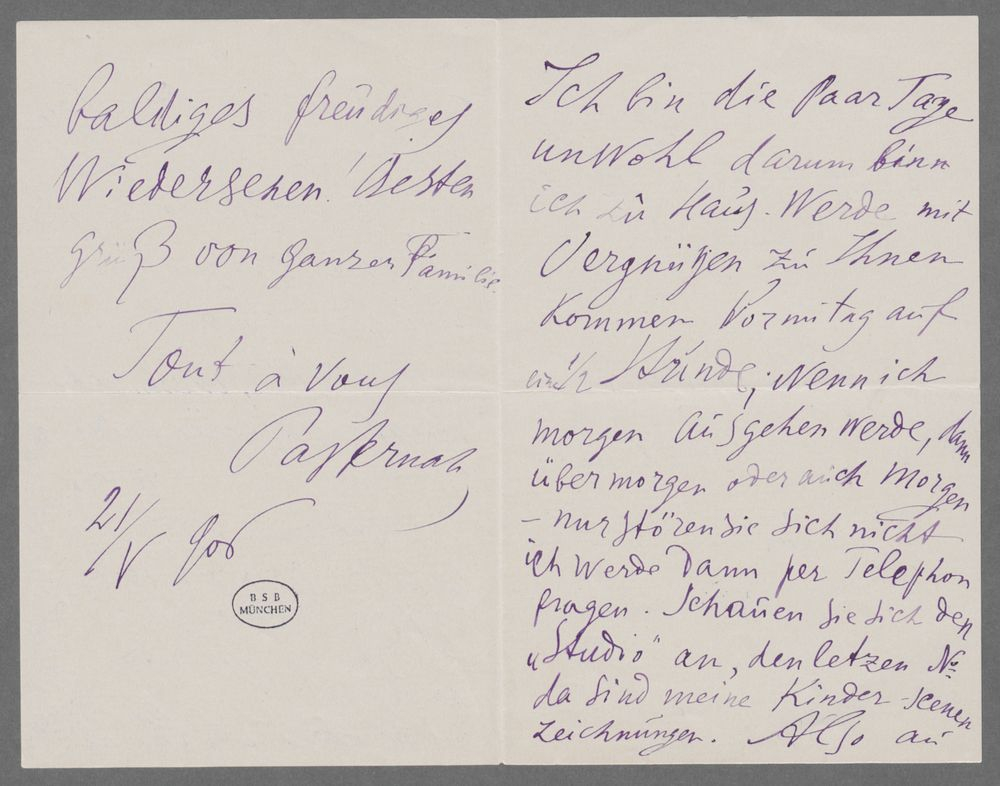 Ich bin die Paar Tage
unwohl darum binn
ich zu Haus. Werde mit
Vergnügen zu Ihnen
kommen Vormitag auf
eine 1/2 Stunde; Wenn ich
morgen ausgehen werde, dann
übermorgen oder auch Morgen
– nur stören sie sich nicht
ich werde Dann per Telephon
fragen. Schauen Sie sich den
„Studio“ an, den letzen No.
da sind meine Kinder-scenen
zeichnungen. Also au
baldiges freudiges
Wiedersehen! Besten
gruß von ganzer Familie
Tout à vous
Pasternak
21/V 906
B S B
MÜNCHEN